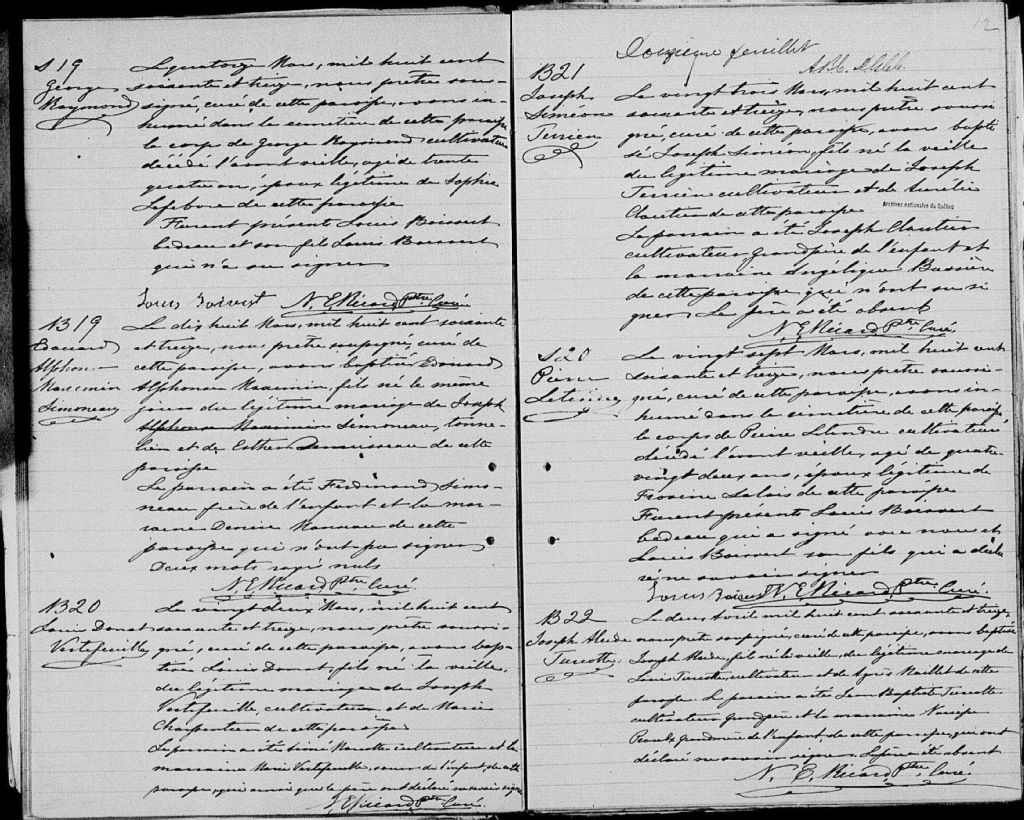 S 19
George
Raymond
Le quatorze Mars, mil huit cent
soixante et treize, nous prêtre sous-
signé, curé de cette paroisse, avons in-
humé dans le cimetière de cette paroisse
le corps de George Raymond cultivateur
décédé l'avant veille, agé de trente
quatre ans, époux légitime de Sophie
Lefebvre de cette paroisse
Furent présent Louis Boisvert
bedeau et son fils Louis Boisvert
qui n'a su signer
Louis Boisvert N. E. Ricard Ptre Curé
B 19
Edouard
Alphonse
Maximin
Simoneau
Le dix huit Mars, mil huit cent soixante
et treize, nous prêtre soussigné, curé de
cette paroisse, avons baptisé Edouard
Alphonse Maximin, fils né le même
jour du légitime mariage de Joseph
Alphonse Maximin Simoneau, tonne-
lier et de Esther de cette
paroisse
Le parrain a été Ferdinand Simo-
neau frère de l'enfant et la mar-
raine Denise de cette
paroisse qui n'ont pu signer
Deux mots rayés nuls
N. E. Ricard Ptre Curé
B 20
Louis Donat
Vertefeuille
Le vingt deux Mars, mil huit cent
soixante et treize, nous prêtre soussi-
gné, curé de cette paroisse, avons bap-
tisé Louis Donat, fils né la veille,
du légitime mariage de Joseph
Vertefeuille, cultivateur et de Marie
Charpentier de cette paroisse
Le parrain a été cultivateur et la
marraine Marie Vertefeuille, soeur de l'enfant, de cette
paroisse, qui ainsi que le père ont déclaré ne savoir signer
N. E. Ricard Ptre Curé
12
Douzième feuillet
B 21
Joseph
Siméon
Terrien
Le vingt trois Mars, mil huit cent
soixante et treize, nous prêtre soussi-
gné, curé de cette paroisse, avons bapti-
sé Joseph Siméon, fils né la veille
du légitime mariage de Joseph
Terrien cultivateur et de Aurélie
Cloutier de cette paroisse
Archives nationales du Québec
Le parrain a été Joseph Cloutier
cultivateur, Grandpère de l'enfant et
la marraine Angélique
de cette paroisse, qui n'ont su si-
gner. Le père a été absent
N. E. Ricard Ptre Curé
S 20
Pierre
Letendre
Le vingt sept Mars, mil huit cent
soixante et treize, nous prêtre soussi-
gné, curé de cette paroisse, avons in-
humé dans le cimetière de cette paroisse
le corps de Pierre Letendre cultivateur
décédé l'avant veille, agé de quatre-
vingt deux ans, époux légitime de
de cette paroisse
Furent présents Louis Boisvert
bedeau qui a signé avec nous et
Louis Boisvert son fils qui a décla-
ré ne savoir signer
Louis Boisvert N. E. Ricard Ptre Curé
B 22
Joseph Alcide
Turcotte
Le deux Avril mil huit cent soixante et treize,
nous prêtre soussigné, curé de cette paroisse, avons baptisé
Joseph Alcide, fils né la veille, du légitime mariage de
Louis Turcotte, cultivateur et de Agnès Maillet de cette
paroisse. Le parrain a été Jean Baptiste Turcotte
cultivateur grandpère et la marraine Narcisse
grandmère de l'enfant, de cette paroisse, qui ont
déclaré ne savoir signer. Le père a été absent
N. E. Ricard, Ptre Curé